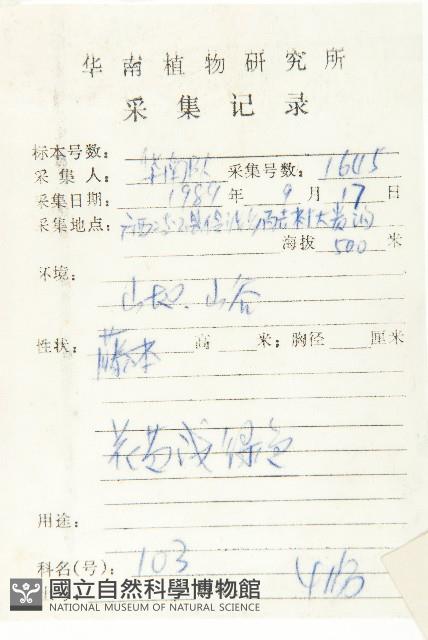 华南植物研究所
采集记录
标本号数：
采集人：华南队 采集号数：1645
采集日期：1989年9月17日
采集地点：广西
海拔 500 米
环境：
山坡、山谷
性状：藤本 高 米；胸径 厘米
花黄浅绿色
用途：
科名(号)：103
國立自然科學博物館
NATIONAL MUSEUM OF NATURAL SCIENCE